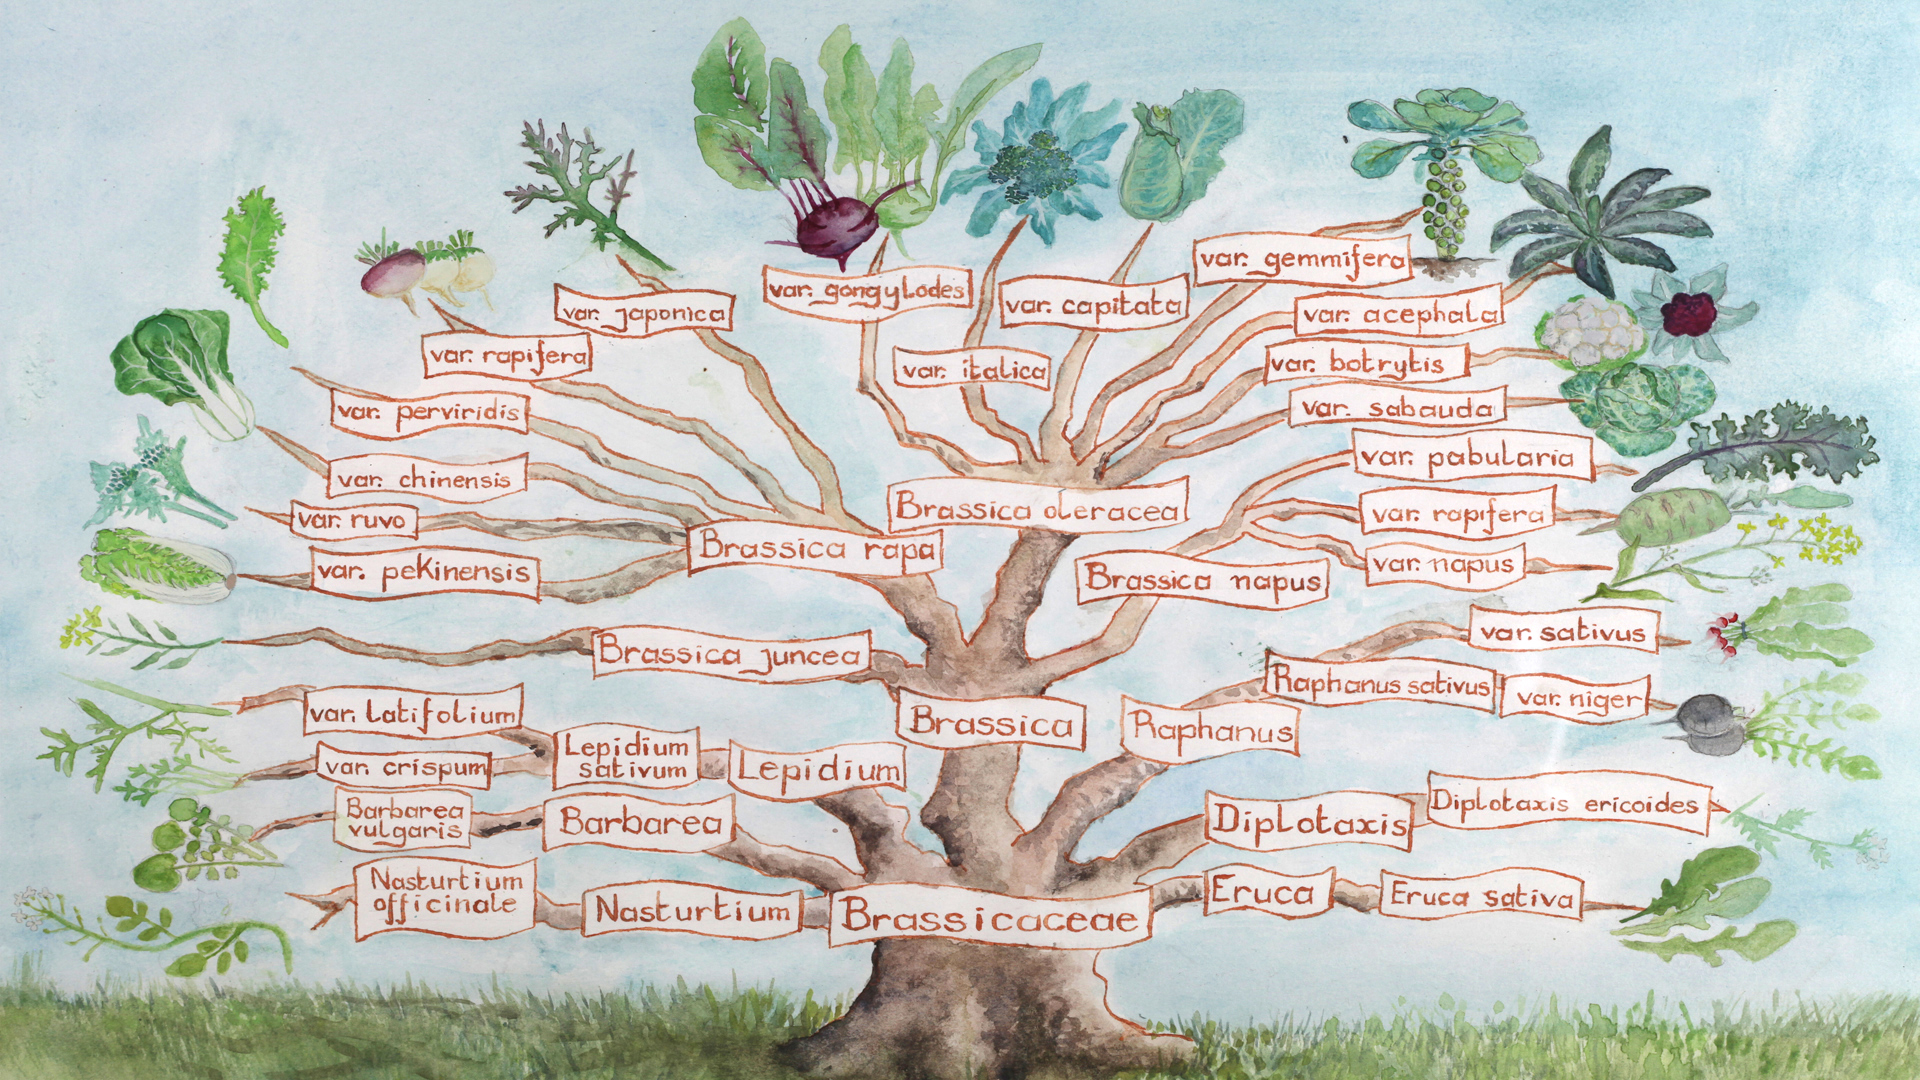 var. gemmifera
var. gongylodes
var. capitata
var. japonica
var. acephala
var. rapifera
var. italica
var. botrytis
var. perviridis
var. sabauda
var. chinensis
var. pabularia
var. ruvo
Brassica oleracea
var. rapifera
var. pekinensis
Brassica rapa
Brassica napus
var. napus
Brassica juncea
var. sativus
Raphanus sativus
var. niger
var. latifolium
Brassica
Raphanus
var. crispum
Lepidium
sativum
Lepidium
Barbarea
vulgaris
Barbarea
Diplotaxis
Diplotaxis ericoides
Nasturtium
officinale
Nasturtium
Brassicaceae
Eruca
Eruca sativa